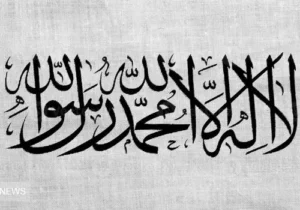 لا إله إلا الله محمد رسول الله
NEWS